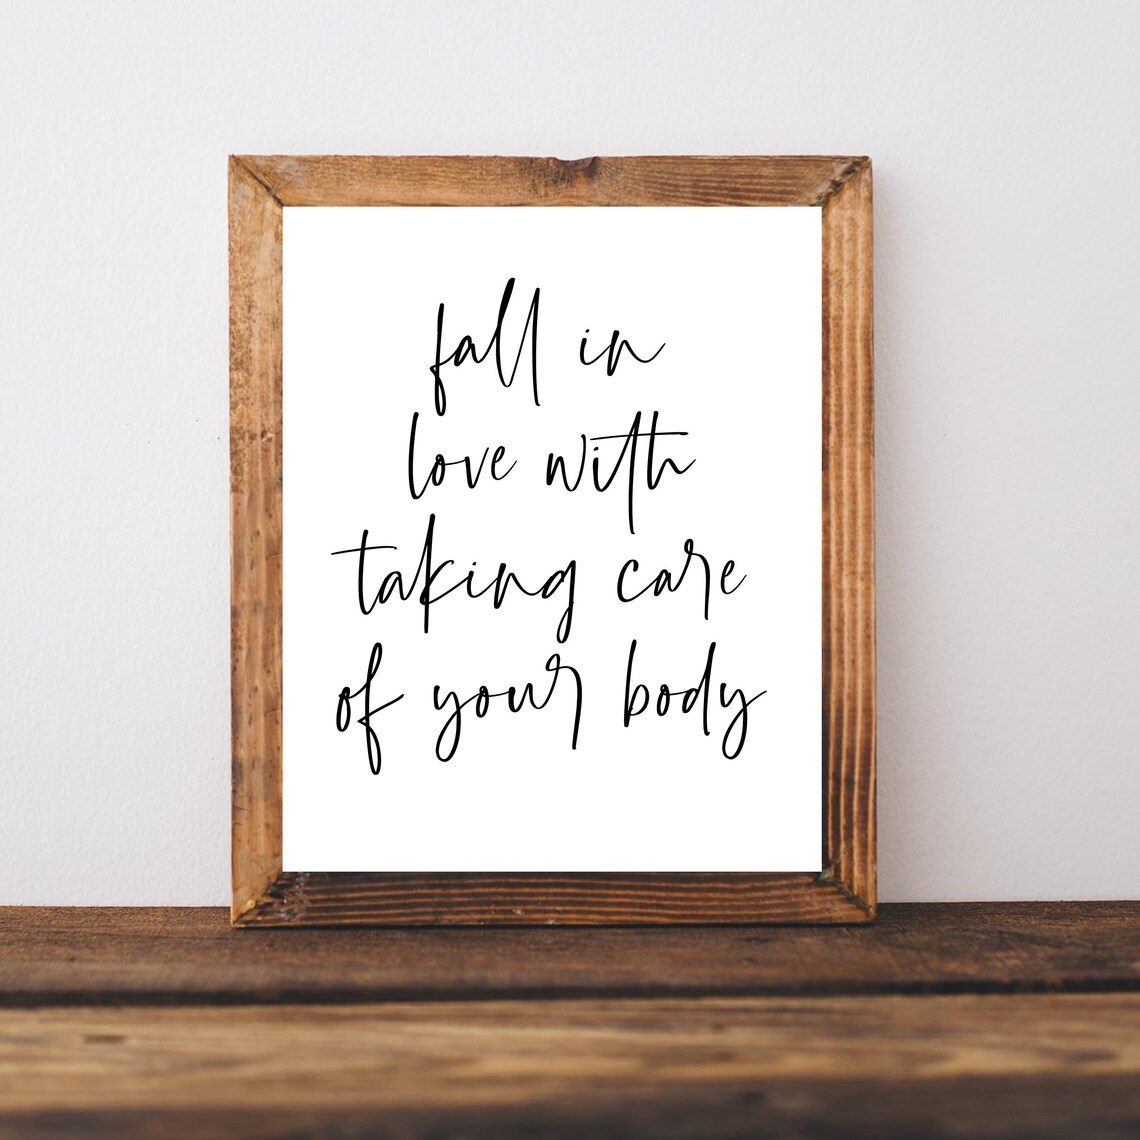 fall in
love with
taking care
of your body